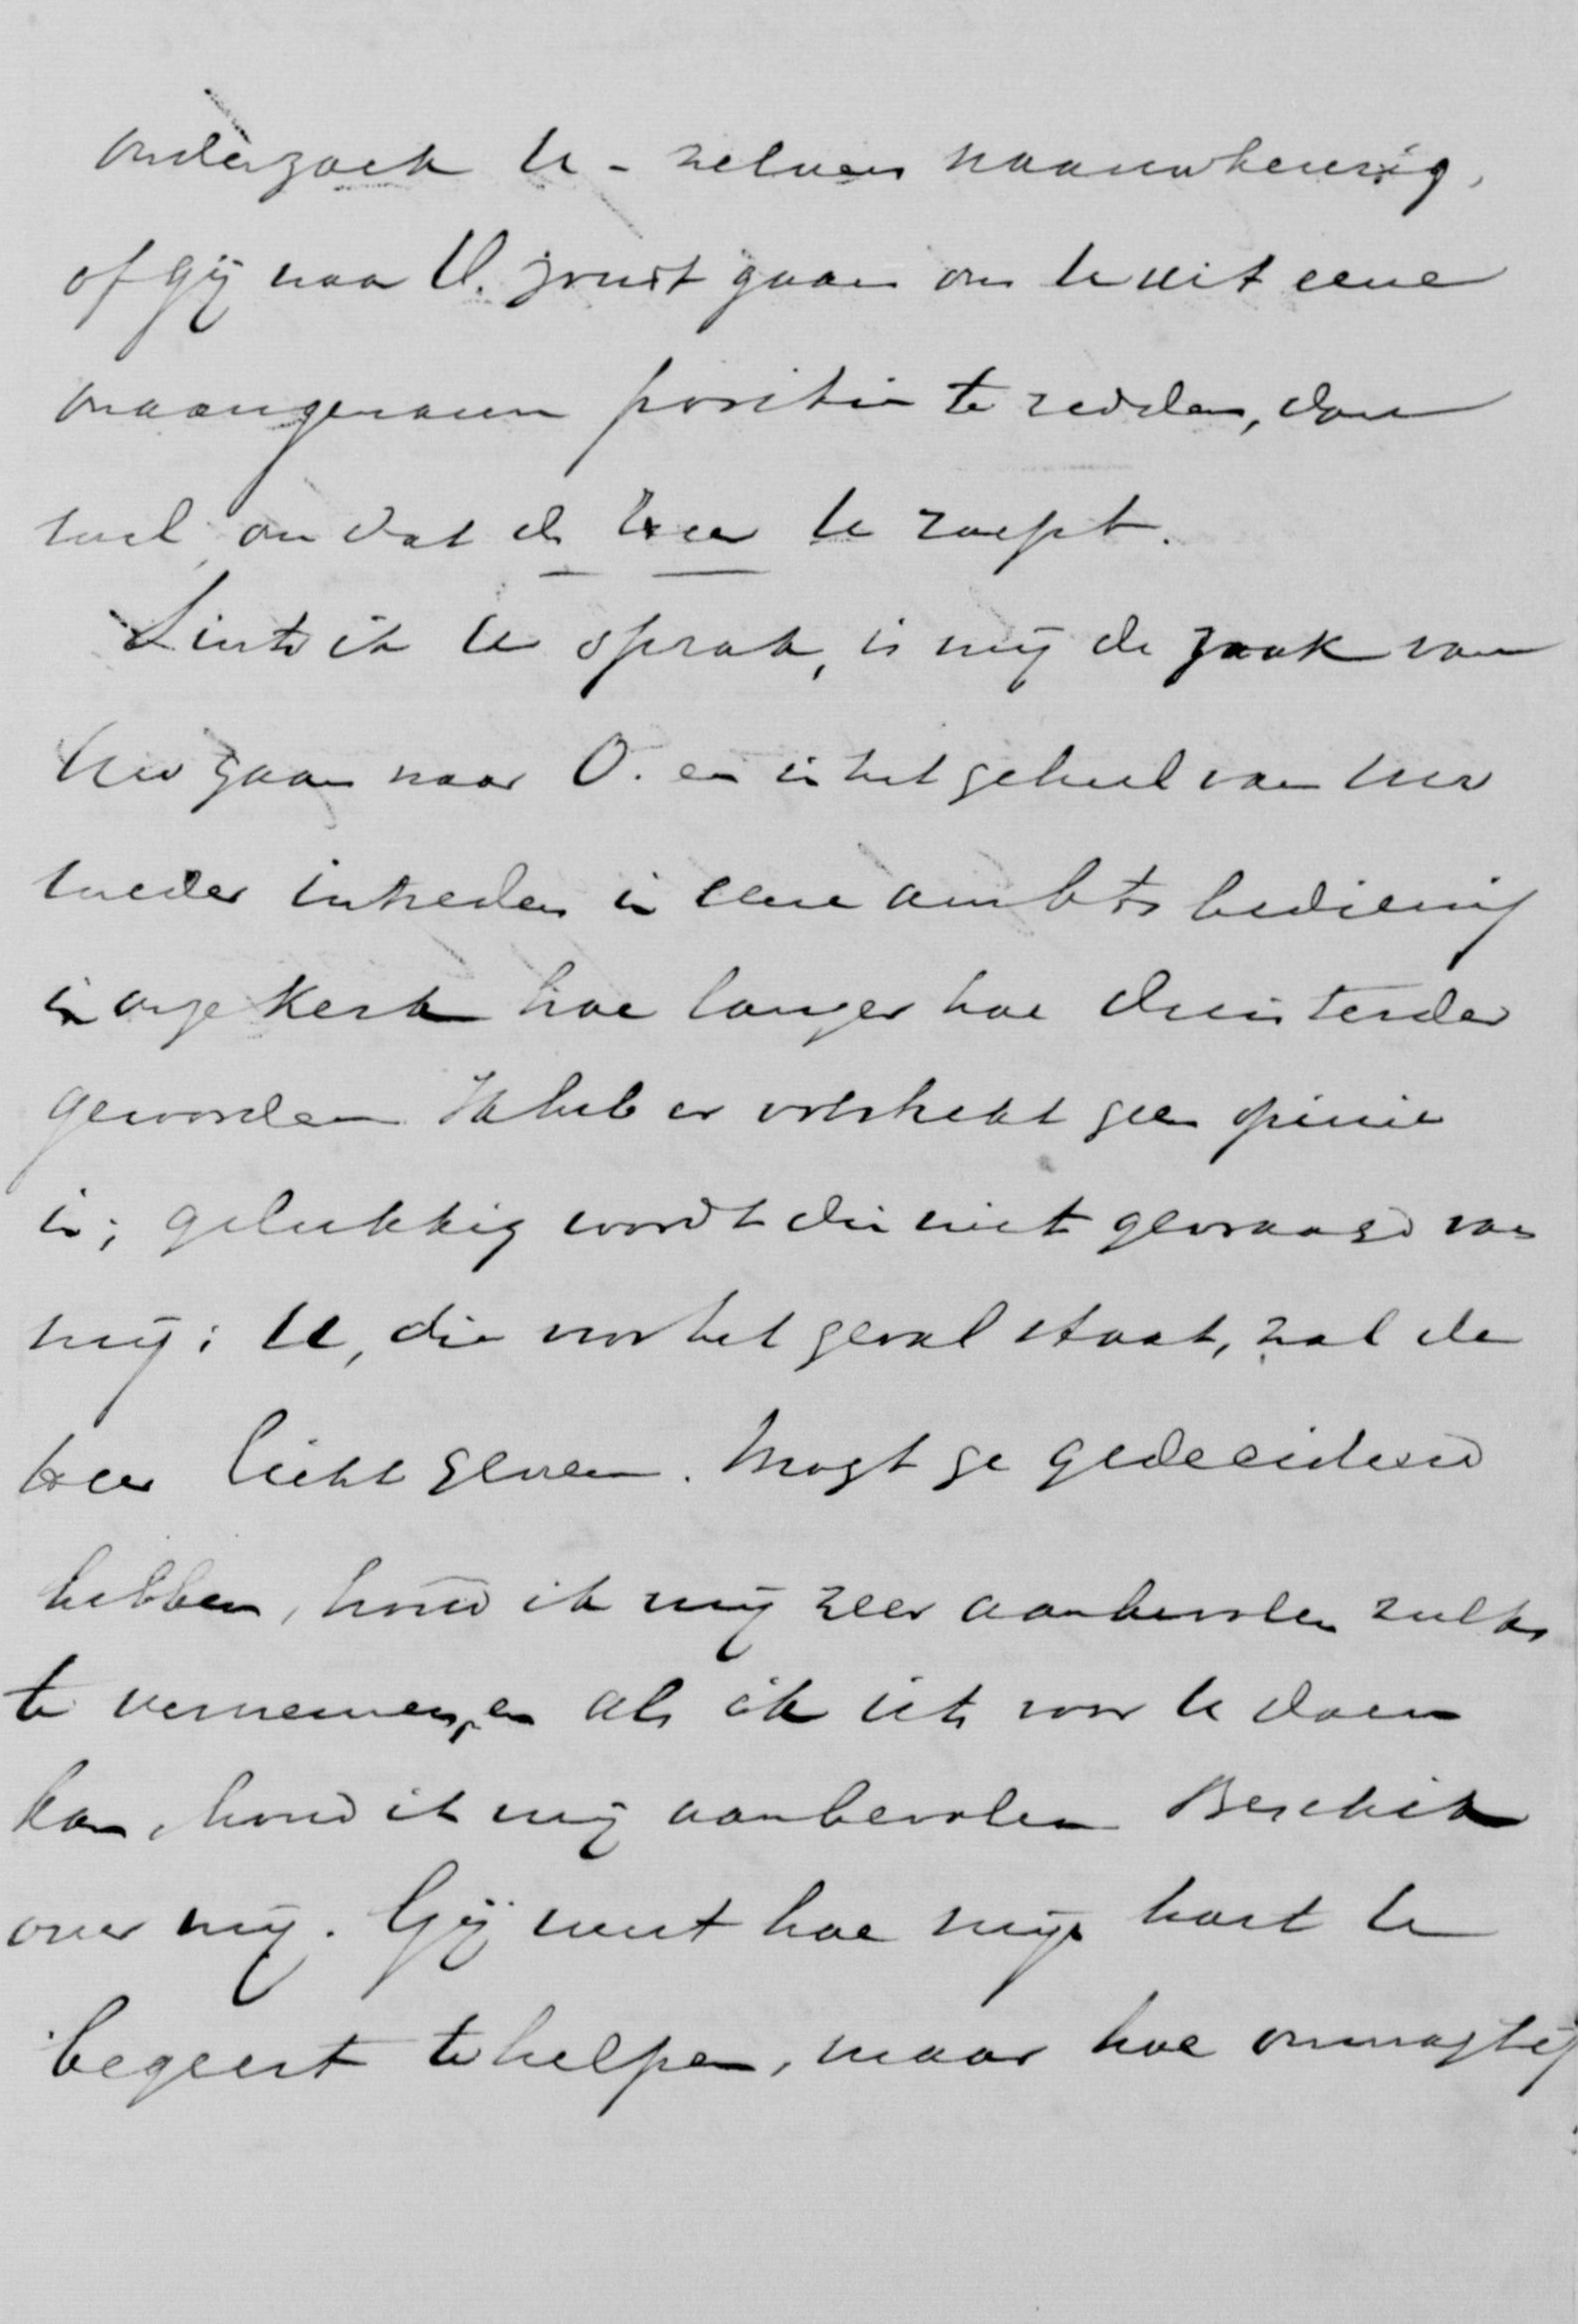 onderzoek U-zelven naauwkeurig,
of gij naar O. zoudt gaan om U uit eene
onaangename positie te redden, dan
wel omdat de Heer U roept.
Sints ik U sprak, is mij de zaak van
Uw gaan naar O. en in het geheel van Uw
weder intreden in eene ambtsbediening
in onze Kerk hoe langer hoe duisterder
geworden. Ik heb er volstrekt geen opinie
in; gelukkig wordt die niet gevraagd van
mij: U, die voor het geval staat, zal de
Heer licht geven. Mogt ge gedecideerd
hebben, houd ik mij zeer aanbevolen zulks
te vernemen, en als ik iets voor U doen
kan, houd ik mij aanbevolen Beschik
over mij. Gij weet hoe mijn hart U
begeert te helpen, maar hoe onmagtig